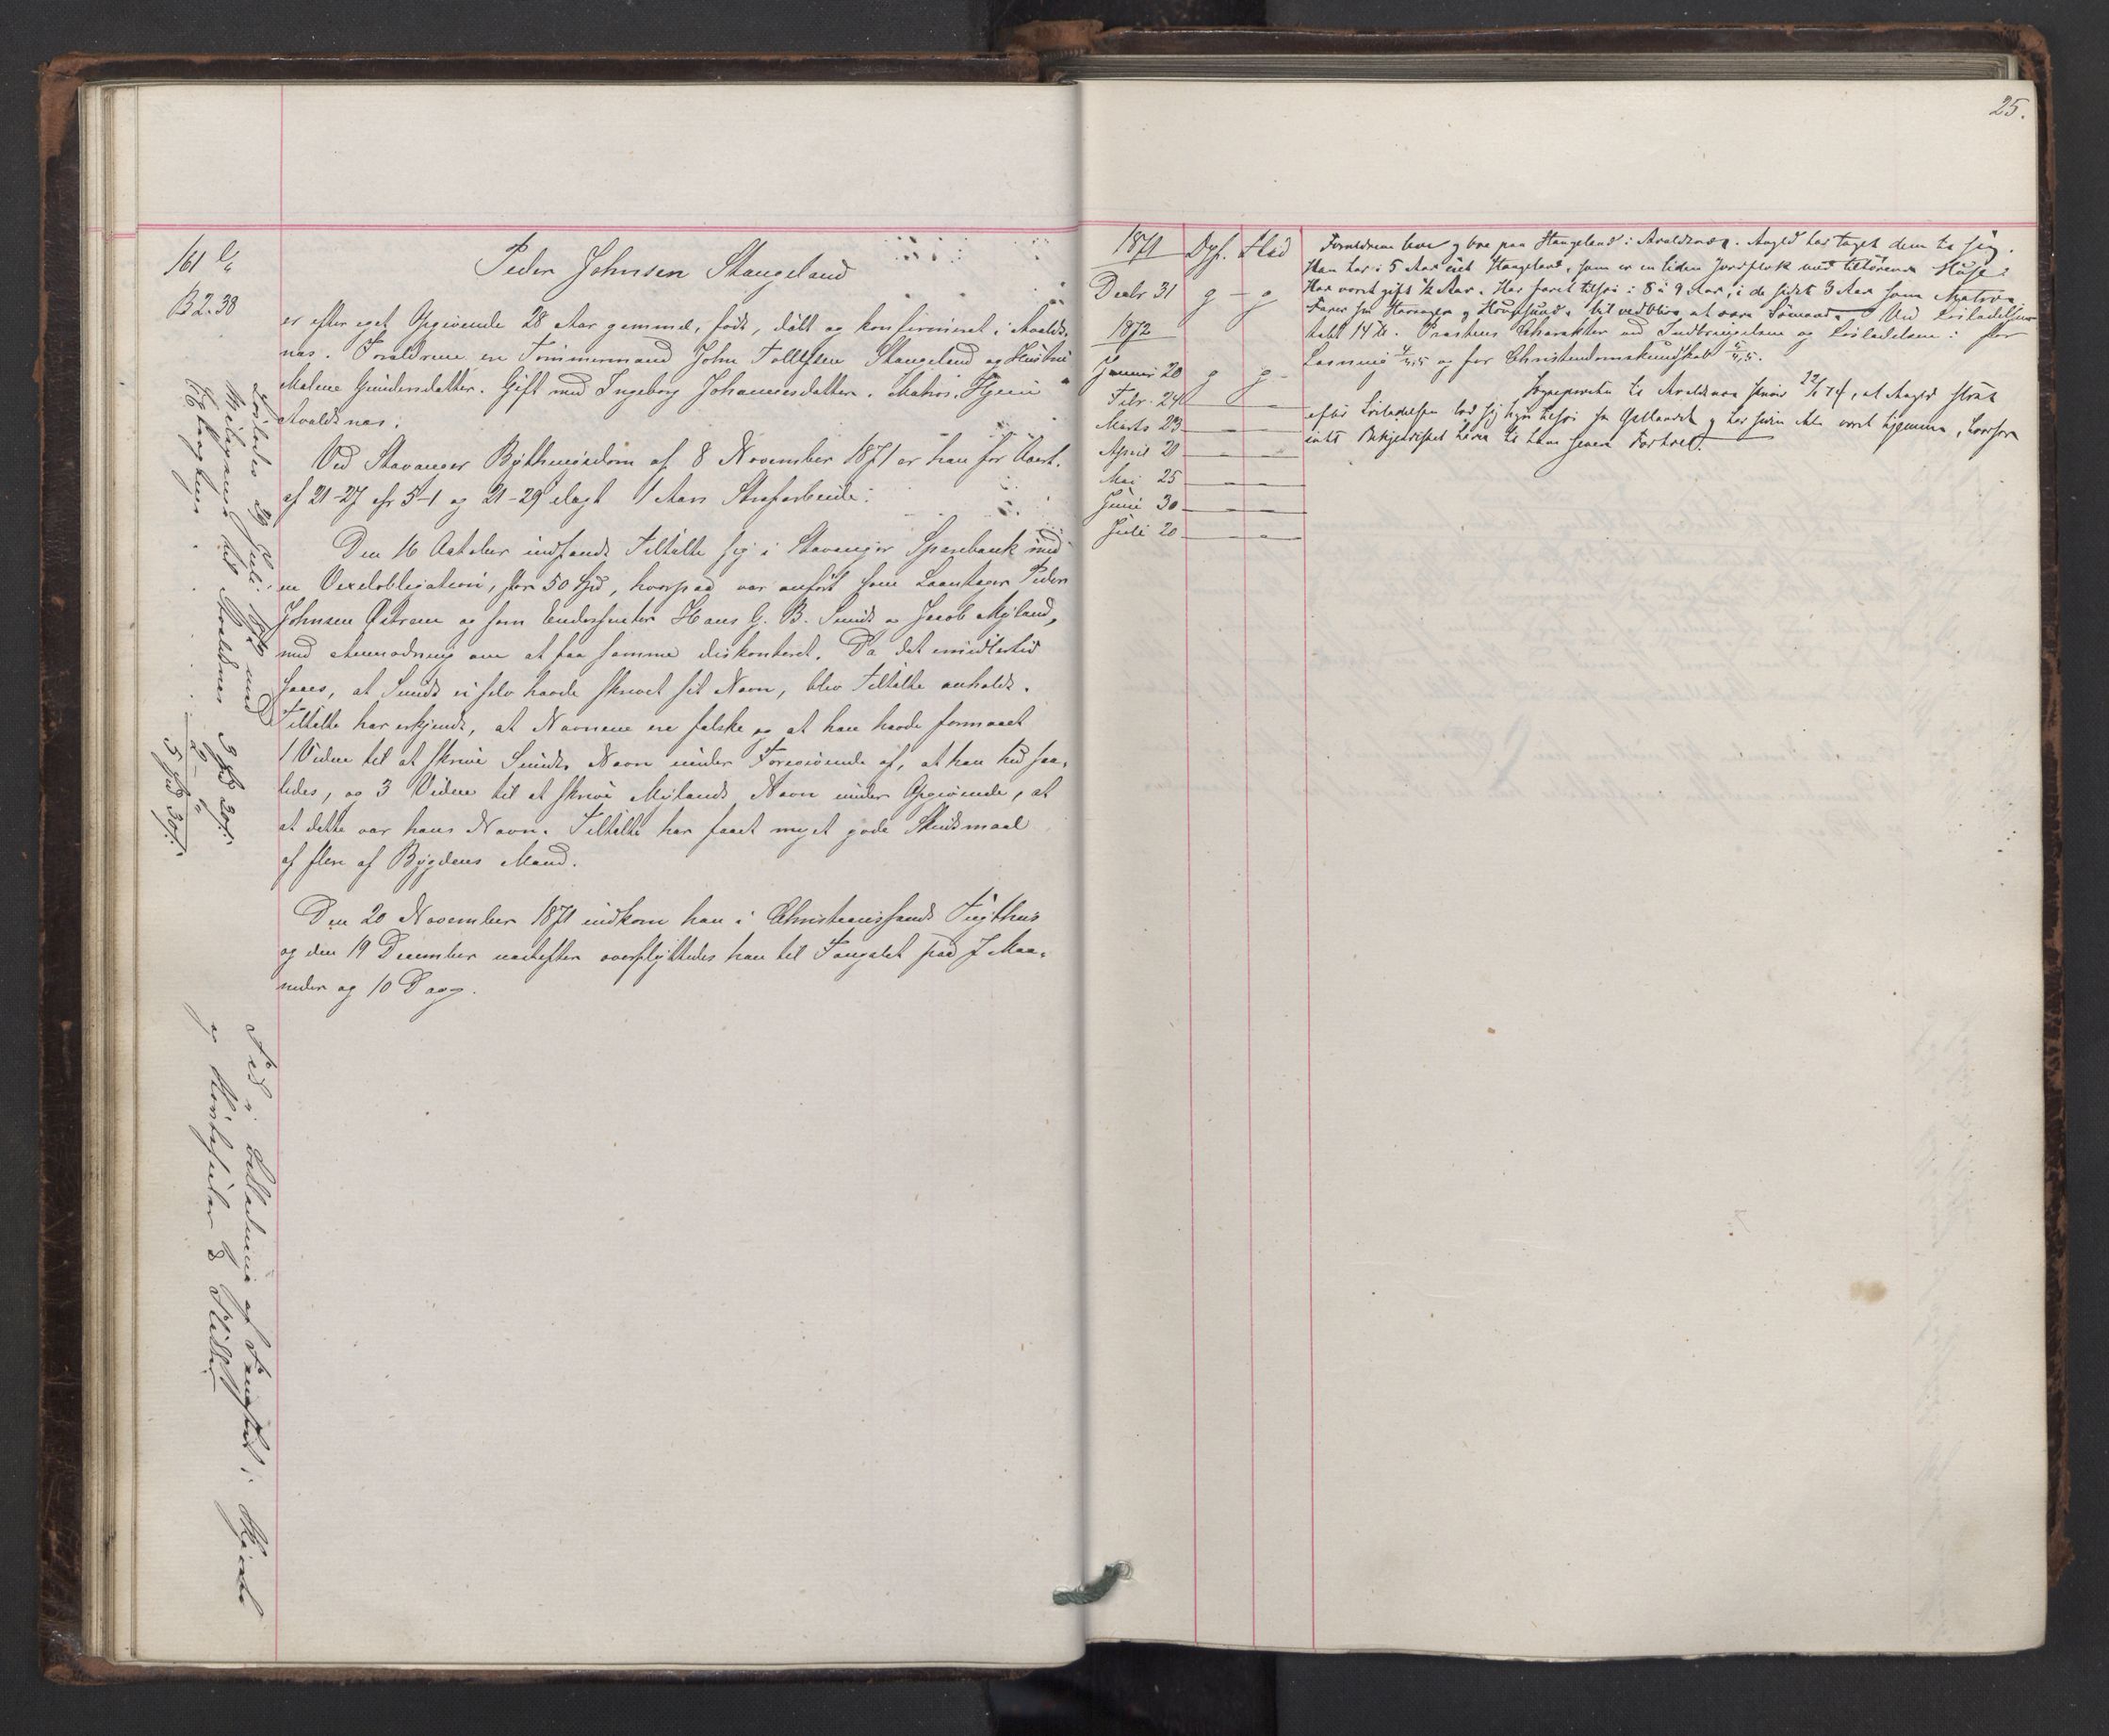 161
B 2.38
Peder Johnsen Stangeland
er efter eget Opgivende 28 Aar gammel, født, døbt og konfirmeret i Avalds-
næs. Forældrene ere Tømmermand John Tollefsen Stangeland og Hustru
Malene Gundersdatter. Gift med Ingeborg Johannesdatter. Matros. Hjem
Avaldsnæs.
Ved Stavanger Bythingsdom af 8 November 1871 er han for Overt.
af 21-27 cfr 5-1 og 21-29 ilagt 1 Aars Strafarbeide.
Den 16 October indfandt Tiltalte sig i Stavanger Sparebank med
en Vexelobligation, stor 50 Spd, hvorpaa var anført som Laantager Peder
Johnsen Østrem og som Endossenter Hans G. B. Sunds og Jacob Myland,
med Anmodning om at faa samme diskonteret. Da det imidlertid
saaes, at Sunds ei selv havde skrevet sit Navn, blev Tiltalte anholdt.
Tiltalte har erkjendt, at Navnene ere falske og at han havde formaaet
1 Vidne til at skrive Sunds Navn under Foregivende af, at han hed saa-
ledes, og 3 Vidne til at skrive Mylands Navn under Opgivende, at
at dette var hans Navn. Tiltalte har faaet meget gode Skudsmaal
af flere af Bygdens Mænd.
Den 20 November 1871 indkom han i Christianssands Tugthus
og den 19 December næstefter overflyttedes han til Fængslet paa 7 Maa-
neder og 10 Dage.
Løsladt 29 Juli 1872 med
Reisepenge til Avaldsnæs 3 Spd 20 s.
2 -
5 Spd 20 s.
Fød i
og
25.
1871 Dpf. Flid
Decbr 31 g - g
1872
Januar 20 g g
Febr. 24
Marts 23
April 20
Mai 25
Juni 30
Juli 20
Forældrene leve og boe paa Stangeland i Avaldsnæs. Angld har taget dem til sig.
Han har i 5 Aar eiet Stangeland, som er en liden Jordflek med tilhørende Huse.
Har været gift ½ Aar. Har faret tilsøs i 8 à 9 Aar, i de sidste 3 Aar som
Farer fra Stavanger og Haugesund. Vil vedblive at være Sømand. Ved Løsladelsen
tabt 14 ℔. Præstens Charakter ved Indbringelsen og Løsladelsen: for
Læsning og for Christendomskundskab
Sognepræsten til Avaldsnæs skriver 22/ 74, at Angld strax
efter Løsladelsen lod sig hyre tilsøs fra og har siden ikke været hjemme, hvorfor
intet Bekjendtskab haves til hans senere Forhold.